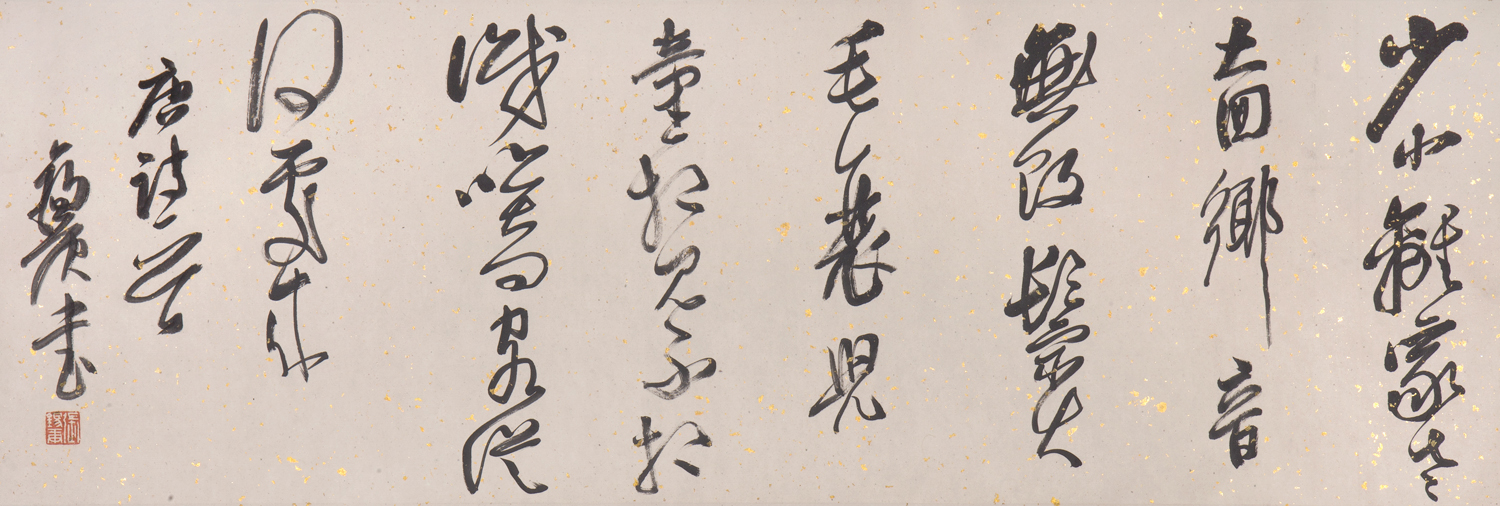 少小離家老
大回鄉音
無改鬢
毛衰兒
童相見不相
識笑問客從
何處來
唐詩一首
書